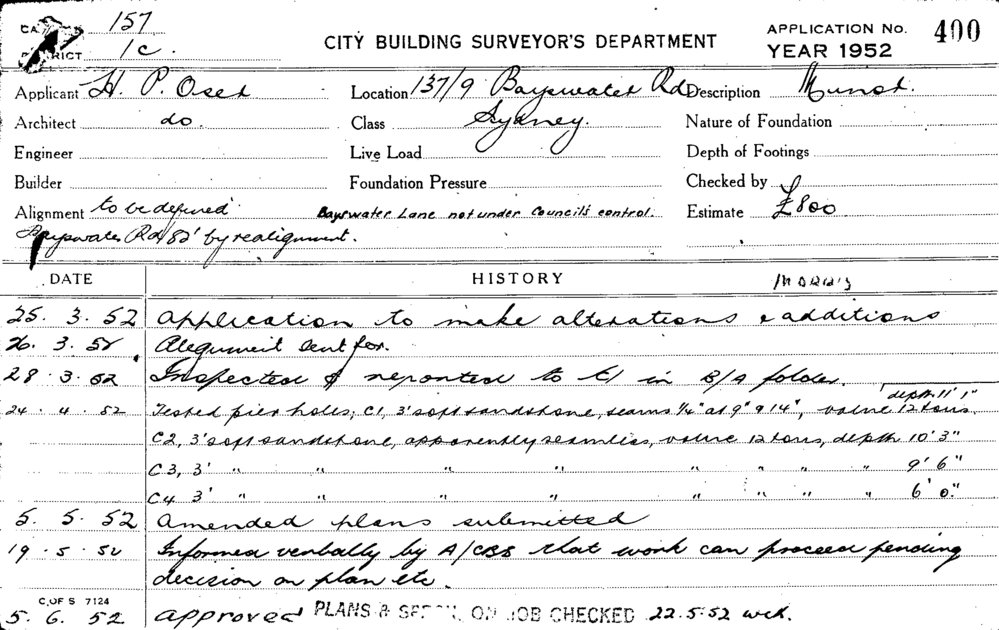 157
DISTRICT 1c.
CITY BUILDING SURVEYOR'S DEPARTMENT
APPLICATION No. 400
YEAR 1952
Applicant H. P. Oser Location 137/9 Bayswater Rd Description
Architect do. Class Sydney. Nature of Foundation
Engineer Live Load Depth of Footings
Builder Foundation Pressure Checked by
Alignment to be defined Bayswater Lane not under Council's control. Estimate £800
Bayswater Rd 82' by realignment.
DATE HISTORY
25. 3. 52 Application to make alterations & additions
26. 3. 52 Alignment sent for.
28. 3. 52 Inspected & reported to in B/A folder.
depth 11' 1"
24. 4. 52 Tested pier holes; C1, 3' soft sandstone, seams ¼" at 9" & 14", value 12 tons.
C2, 3' soft sandstone, apparently seamless, value 12 tons, depth 10' 3"
C3, 3' " " " " " " " " 9' 6"
C4 3' " " " " " " " " 6' 0."
5. 5. 52 Amended plans submitted
19. 5. 52 Informed verbally by A/CBS that work can proceed pending
decision on plan etc.
C. OF S 7124
5. 6. 52 Approved PLANS & ON JOB CHECKED 22.5.52